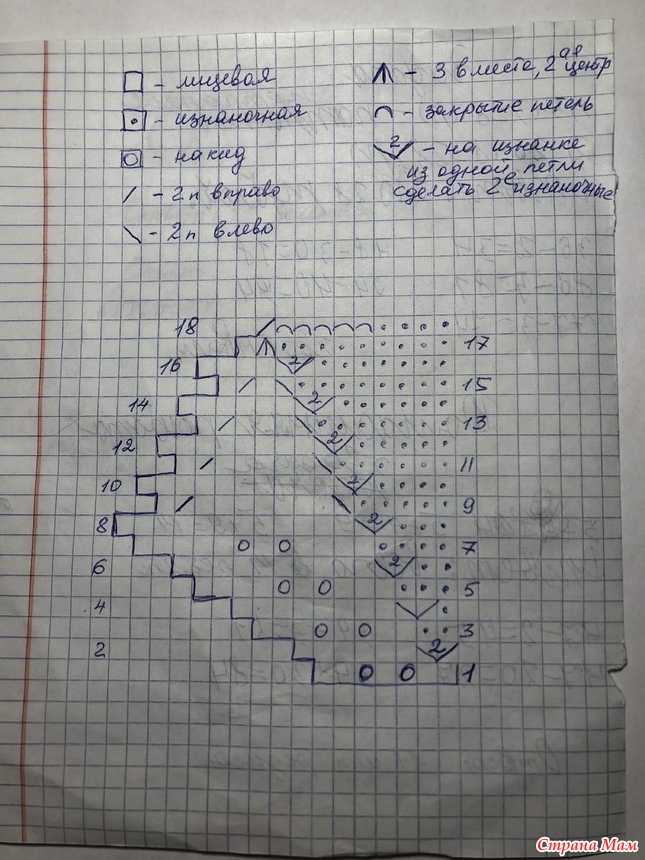 - лицевая
- изнаночная
- накид
- 2п вправо
- 2п влево
- 3 вместе, 2ая центр
- закрытие петель
2 - на изнанке
из одной петли
сделать 2е изнаночные
18
17
16
2
15
14
2
13
12
2
11
10
2
9
8
2
7
6
2
5
4
3
2
2
1
Страна Мам